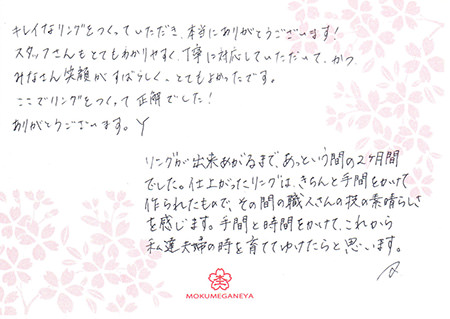 キレイなリングをつくっていただき、本当にありがとうございます!
スタッフさんもとてもわかりやすく、丁寧に対応していただいて、かつ
みなさん笑顔がすばらしく、とてもよかったです。
ここでリングをつくって正解でした!
ありがとうございます。Y
リングが出来あがるまで、あっという間の2ヶ月間
でした。仕上がったリングは、きちんと手間をかけて
作られたもので、その間の職人さんの技の素晴らしさ
を感じます。手間と時間をかけて、これから
私達夫婦の時を育ててゆけたらと思います。
MOKUMEGANEYA